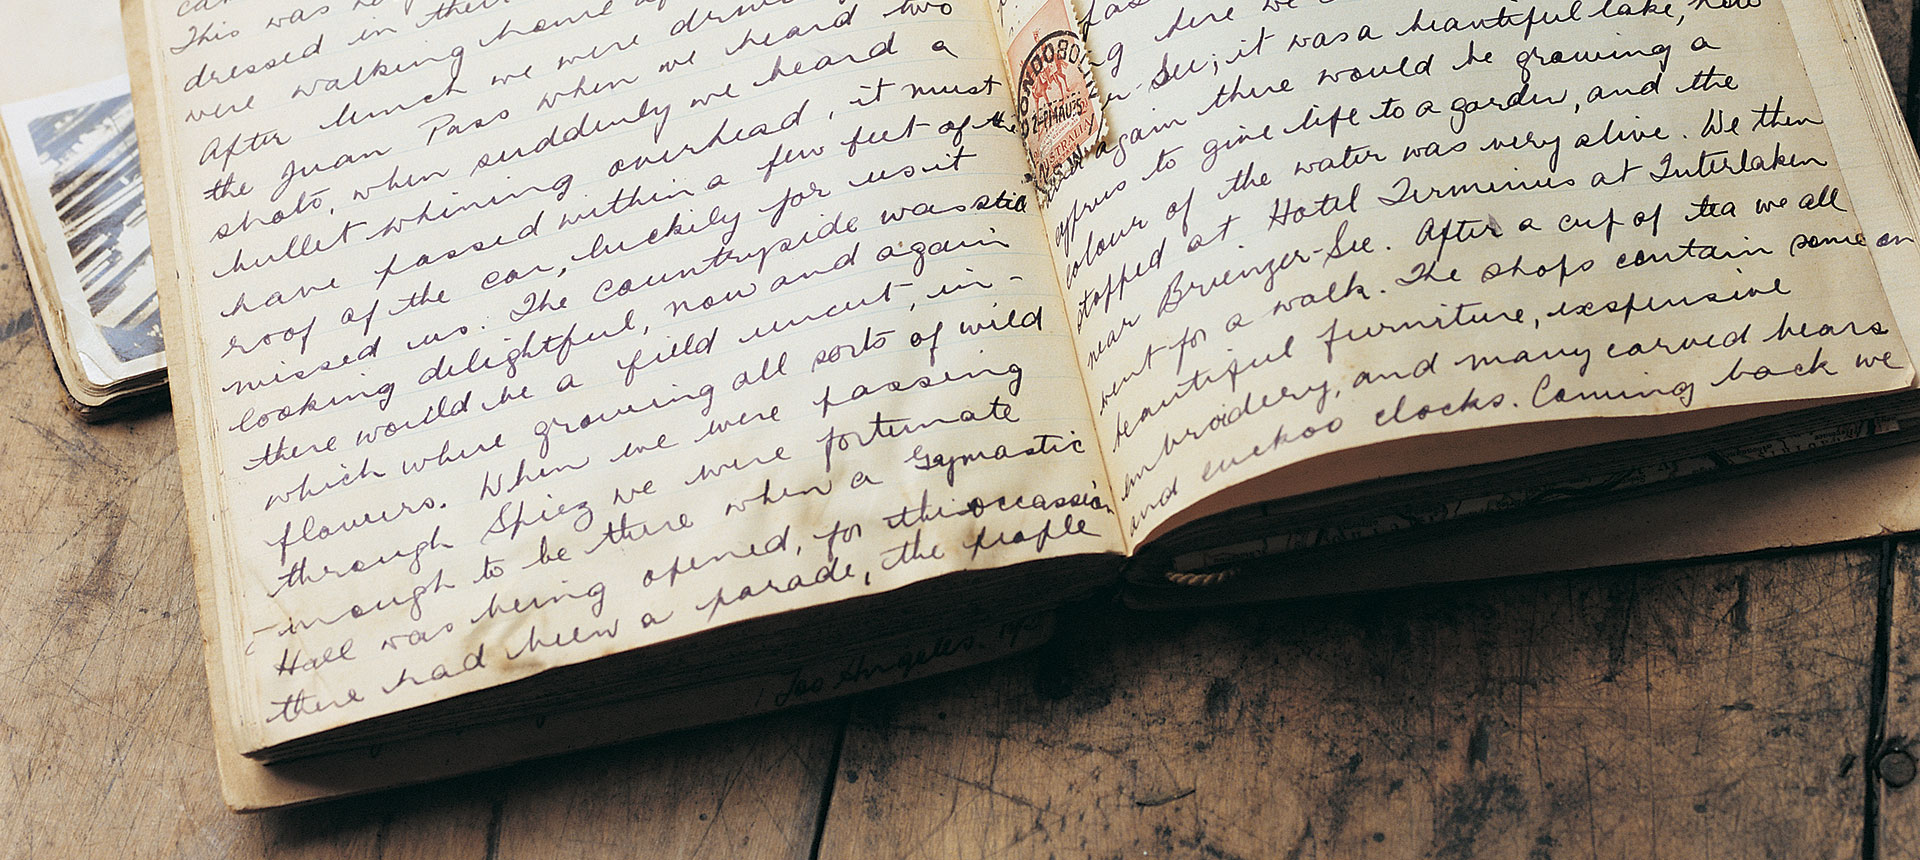 This was
dressed in their
were walking home
After lunch we were
the Juan Pass when we heard two
shots, when suddenly we heard a
bullet whining overhead, it must
have passed within a few feet of the
roof of the car, luckily for us it
missed us. The countryside was still
looking delightful, now and again
there would be a field uncut, in-
which where growing all sorts of wild
flowers. When we were passing
through Spiez we were fortunate
-enough to be there when a Gymastic
Hall was being opened, for this occassion
there had been a parade, the people
Los Angeles.
here we
-See; it was a beautiful lake, now
and again there would be growing a
cyprus to give life to a garden, and the
colour of the water was very alive. We then
stopped at. Hotel Terminus at Interlaken
near Brienzer-See. After a cup of tea we all
went for a walk. The shops contain some
beautiful furniture, exspensive
embroidery, and many carved bears
and cuckoo clocks. Coming back we
ONDOBOLIN
AUSTRALIA
N.S.W.